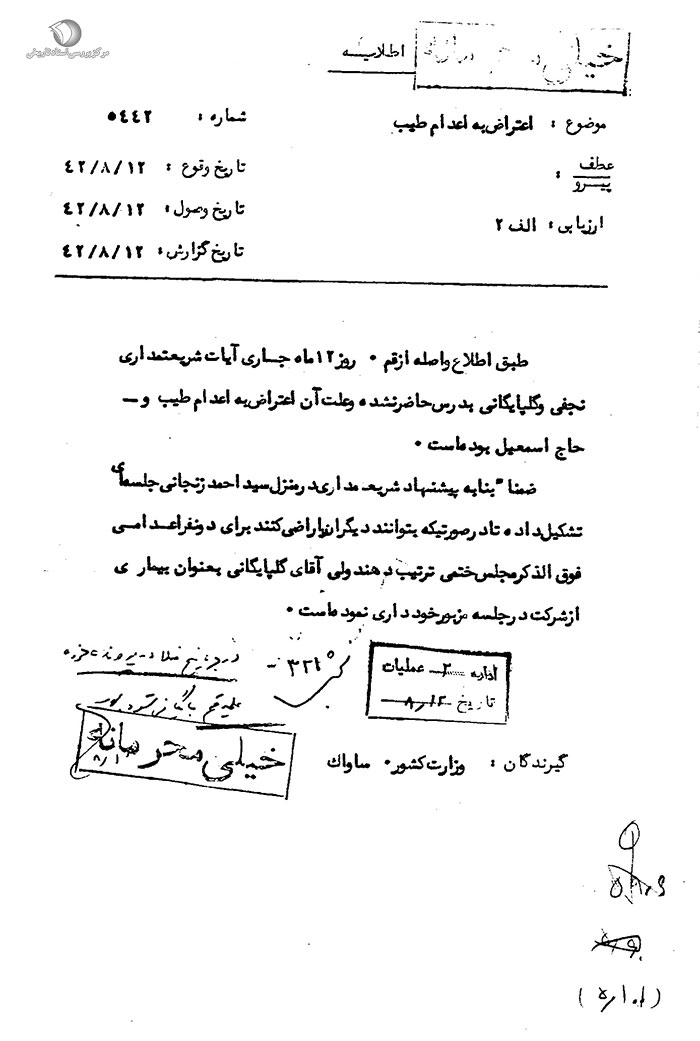 مرکز بررسی اسناد تاریخی
خیلی محرمانه
اطلاعیه
موضوع : اعتراض به اعدام طیب
شماره : ۵۴۴۲
عطف
پیرو :
تاریخ وقوع : ۴۲/۸/۱۲
تاریخ وصول : ۴۲/۸/۱۲
ارزیابی : الف ۲
تاریخ گزارش : ۴۲/۸/۱۲
طبق اطلاع واصله از قم ۰ روز ۱۲ ماه جاری آیات شریعتمداری
نجفی و گلپایگانی بدرس حاضر نشده و علت آن اعتراض به اعدام طیب و ـ
حاج اسمعیل بوده است ۰
ضمنا" بنا به پیشنهاد شریعتمداری در منزل سید احمد زنجانی جلسه‌ای
تشکیل داده تا در صورتیکه بتوانند دیگران را راضی کنند برای دو نفر اعدامی
فوق الذکر مجلس ختمی ترتیب دهند ولی آقای گلپایگانی بعنوان بیماری
از شرکت در جلسه مزبور خودداری نموده است ۰
۳۲۱
اداره ۲ عملیات
تاریخ ۸/۱۲
خیلی محرمانه
گیرندگان : وزارت کشور ۰ ساواک
(اداره)